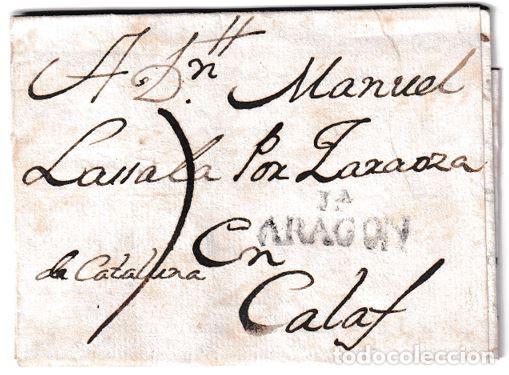 A Dn Manuel
Lassala Por Zaragoza
JA
ARAGON
En
da Cataluna
Calaf
todocoleccion